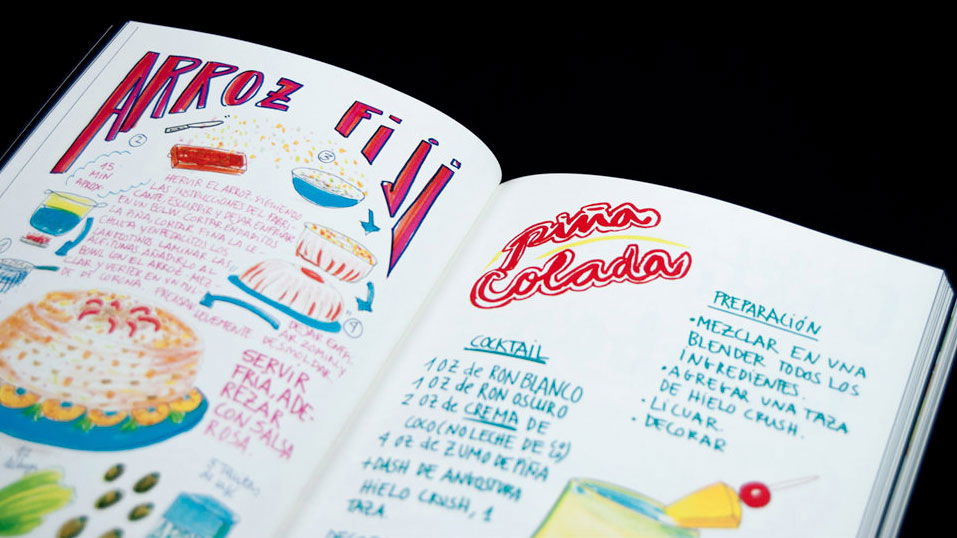 ARROZ FIJI
2
3
15
MIN
APROX
HERVIR EL ARROZ SIGUIENDO
LAS INSTRUCCIONES DEL FABRI-
CANTE, ESCURRIR Y DEJAR ENFRIAR
EN UN BOLW. CORTAR EN DADITOS
LA PIÑA, CORTAR FINA LA LE
CHUGA Y EN PEDACITOS LOS
LAMINAR LAS
ACEITUNAS AÑADIRLO AL
BOWL CON EL ARROZ, MEZ-
CLAR Y VERTER EN UN MOL-
DE DE CORONA. PRESIONAR
LEVEMENTE
DEJAR ENFRI-
AR 20 MIN. Y
DESMOLDAR.
4
SERVIR
FRÍA, ADE-
REZAR
CON SALSA
ROSA.
piña
colada
COCKTAIL
1 OZ de RON BLANCO
1 OZ de RON OSCURO
2 OZ de CREMA DE
COCO (NO LECHE DE
4 OZ de ZUMO DE PIÑA
+ DASH DE ANGOSTURA
HIELO CRUSH, 1
TAZA.
PREPARACIÓN
• MEZCLAR EN UNA
BLENDER TODOS LOS
INGREDIENTES.
• AGREGAR UNA TAZA
DE HIELO CRUSH.
• LICUAR.
• DECORAR